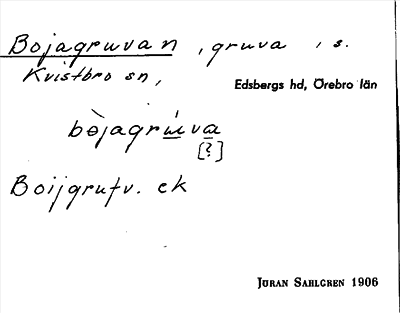 Bojagruvan, gruva, s.
Kvistbro sn,
Edsbergs hd, Örebro län
bòjagrúva
[?]
Boijgrufv. ek
JÖRAN SAHLGREN 1906